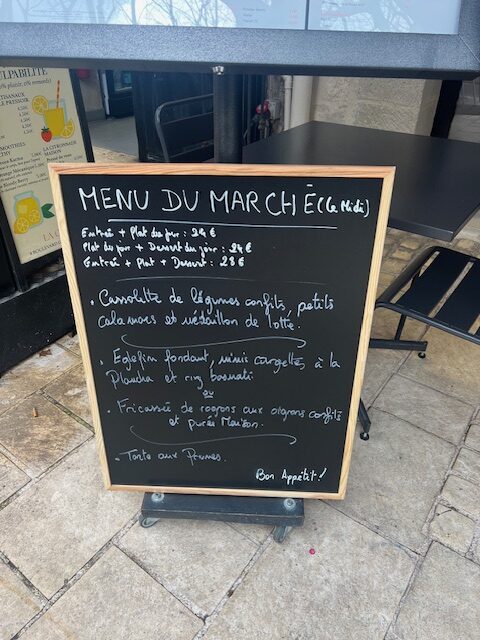 ULPABILITÉ
MENU DU MARCHÉ (Le Midi)
Entrée + Plat du jour : 24 €
Plat du jour + Dessert du jour : 24 €
Entrée + Plat + Dessert : 28 €
• Cassolette de légumes confits, petits
calamars et médaillon de lotte.
• Eglefin fondant, minis courgettes à la
Plancha et riz basmati
ou
• Fricassée de rognons aux oignons confits
et purée Maison.
• Tarte aux Prunes.
Bon Appétit !